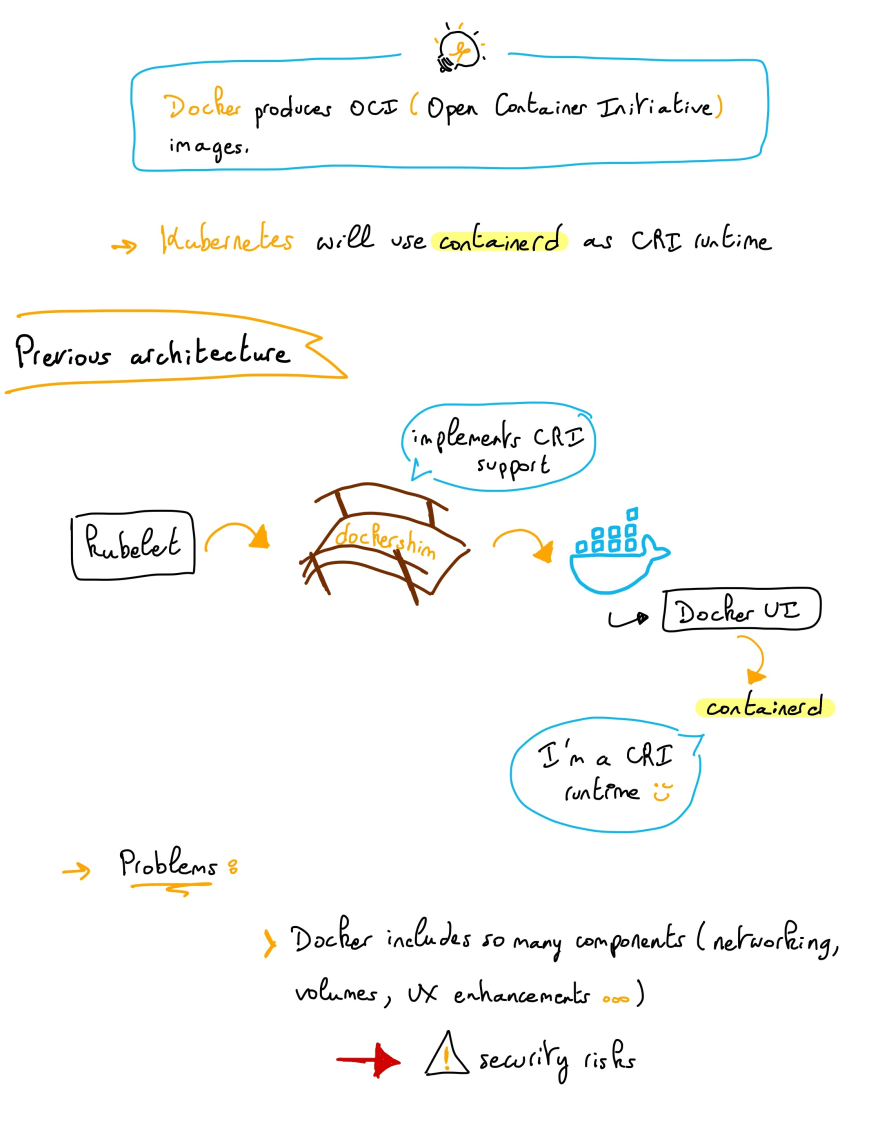 Docker produces OCI (Open Container Initiative)
images.
→ Kubernetes will use containerd as CRI runtime
Previous architecture
implements CRI
support
kubelet
dockershim
Docker UI
containerd
I'm a CRI
runtime
→ Problems :
> Docker includes so many components (networking,
volumes, UX enhancements ...)
! security risks